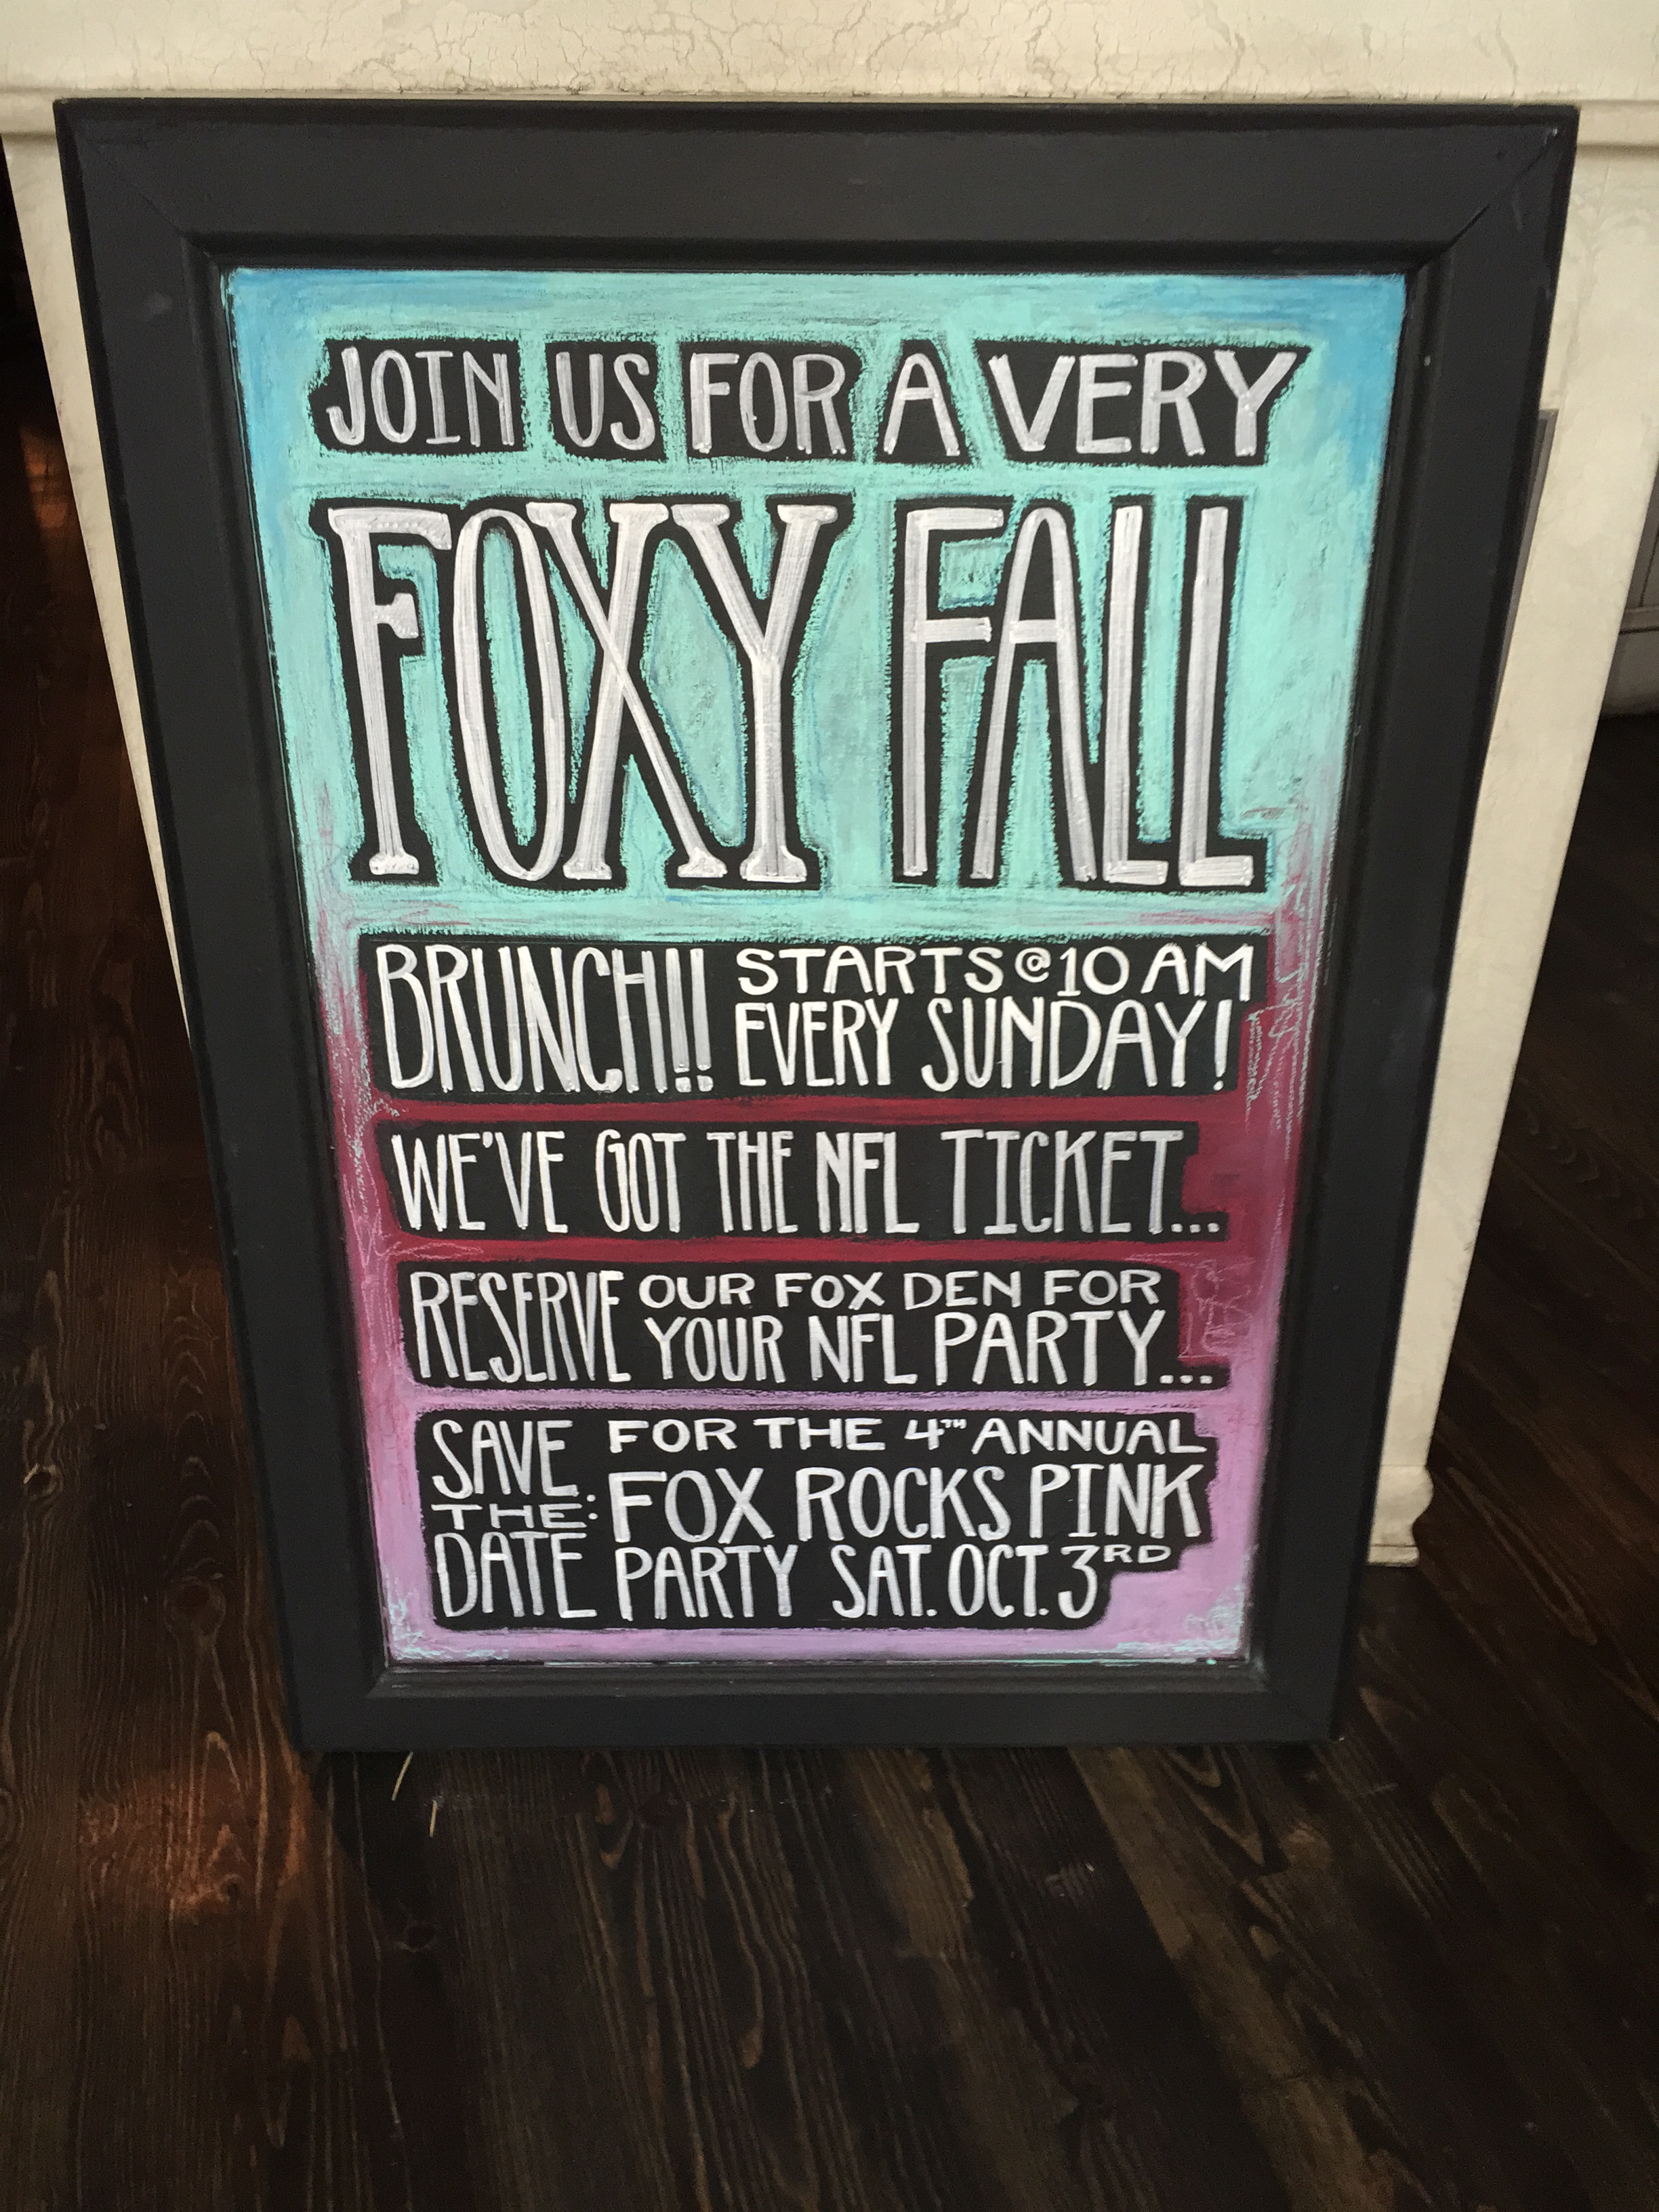 JOIN US FOR A VERY
FOXY FALL
BRUNCH!! STARTS @ 10 AM
EVERY SUNDAY!
WE'VE GOT THE NFL TICKET...
RESERVE OUR FOX DEN FOR
YOUR NFL PARTY...
SAVE THE: DATE
FOR THE 4TH ANNUAL
FOX ROCKS PINK
PARTY SAT. OCT. 3RD